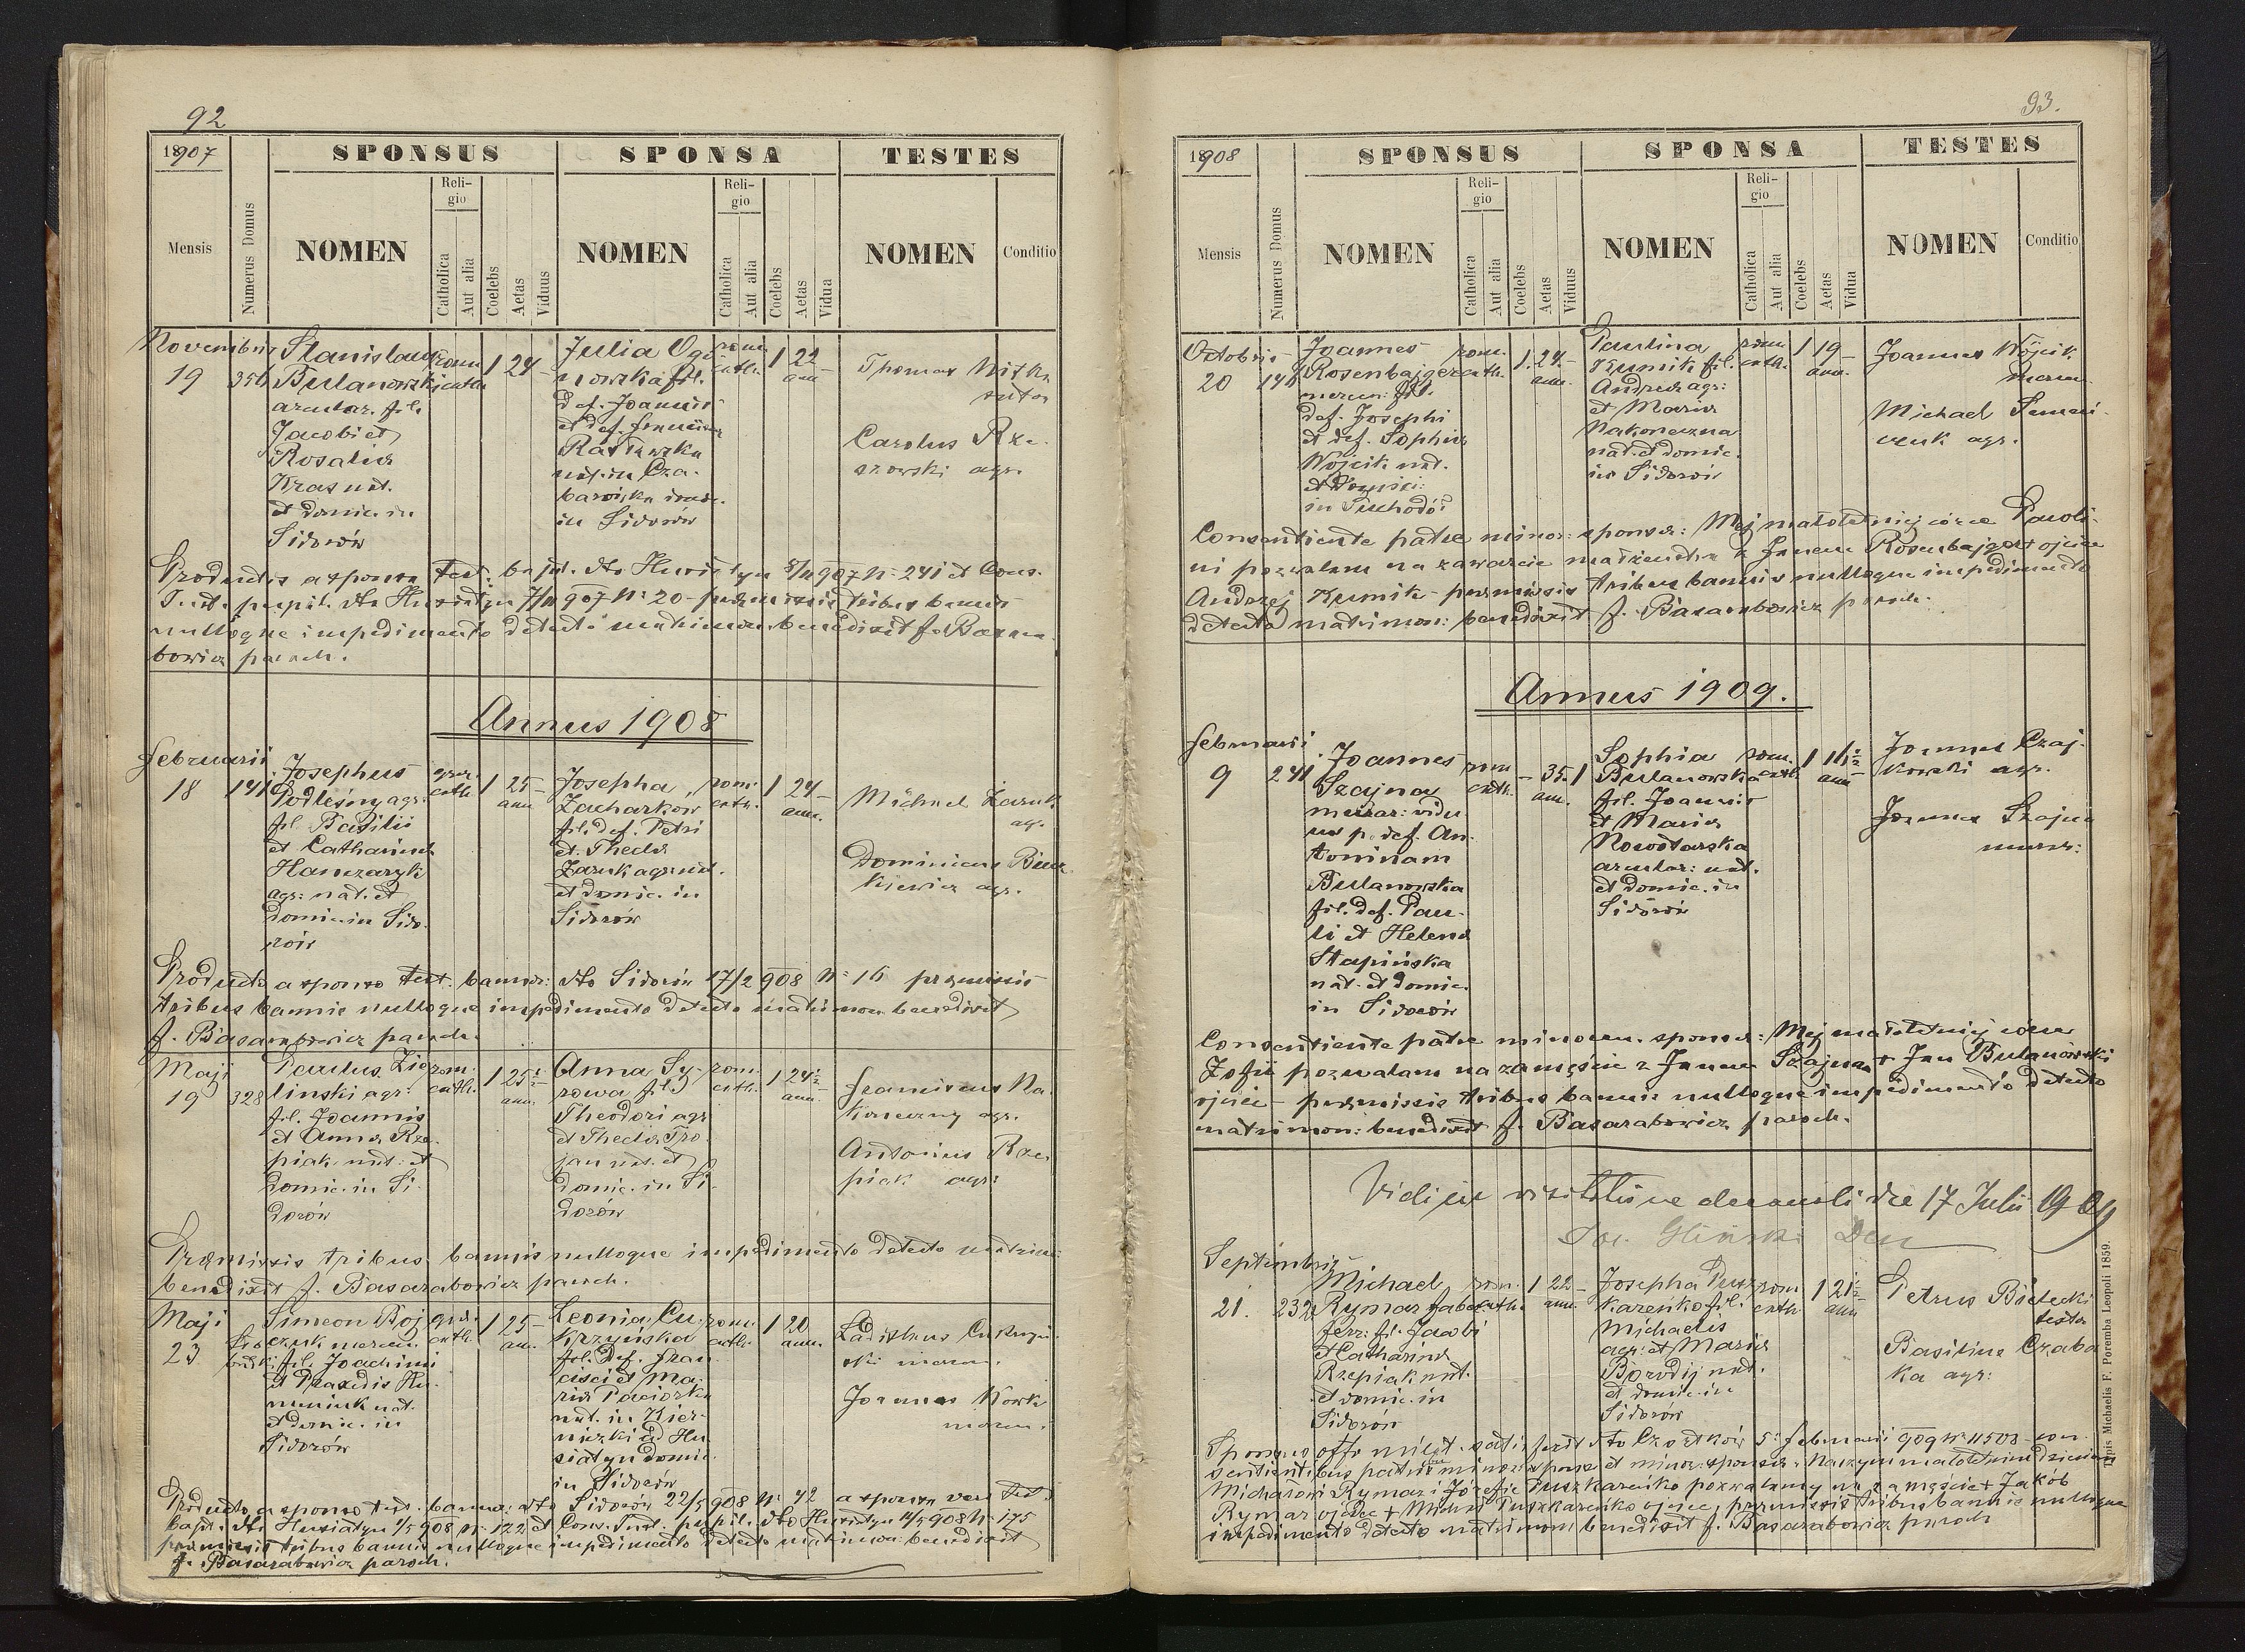 92
1907
SPONSUS
SPONSA
TESTES
Mensis
Numerus Domus
NOMEN
Religio
Catholica
Aut alia
Coelebs
Aetas
Viduus
NOMEN
Religio
Catholica
Aut alia
Coelebs
Aetas
Vidua
NOMEN
Conditio
Novembris
19
356
Stanislaus
Bulanowski
arcular. fil.
Jacobi et
Rosaliæ
Kras nat.
et domic. in
Sidorów
rom. cath.
1
24
Julia Ogo-
nowska fil.
def. Joannis
et def.
nat. in Cza-
barówka
in Sidorów
rom. cath.
1
22 ann.
Thomas
sutor
Carolus Rze-
szowski agr.
Producto a sponsa test. bapt. dto Husiatyn 907 N: 241 et Cons.
Jud. pupil. dto Husiatyn 907 N: 20 præmissis tribus bannis
nulloque impedimento detecto matrimon. benedixit J. Basara-
bowicz paroch.
Annus 1908
Februarii
18
141
Josephus
Podleśny agr.
fil. Basilii
et Catharinæ
Hanczaryk
agr: nat. et
domic. in Sido-
rów
græc. cath.
1
25 ann.
Josepha
Zacharkow
fil. def. Petri
et Theclæ
Zaruk agr. nat.
et domic. in
Sidorów
rom. cath.
1
24 ann.
Michael Zaruk
agr.
Dominicus
kiewicz agr.
Producto a sponso test. bannor: dto Sidorów 17/2 908 N: 16 præmissis
tribus bannis nulloque impedimento detecto matrimon. benedixit
J. Basarabowicz paroch.
Maji
19
328
Paulus Zie-
linski agr.
fil. Joannis
et Annæ Rze-
piak nat. et
domic. in Si-
dorów
rom. cath.
1
25½ ann.
Anna Sy-
rowa fil.
Theodori agr.
et Theclæ Tro-
jan nat. et
domic. in Si-
dorów
rom. cath.
1
24½ ann.
Franciscus Na-
koneczny agr.
Antonius Rze-
piak agr:
Præmissis tribus bannis nulloque impedimento detecto matrim:
benedixit J. Basarabowicz paroch.
Maji
23
Simeon Boj-
czuk mercen.
fil. Joachimi
et Praxedis
nat.
et domic. in
Sidorów
cath.
1
25 ann.
Leonia Cu-
krzyńska
fil. def. Fran-
cisci et Ma-
riæ
nat. in Kier-
niczki ad Hu-
siatyn domic.
in Sidorów
rom. cath.
1
20 ann.
Ladislaus Cukrzyń-
ski mercen.
Joannes
mercen.
Producto a sponso test. bannor: dto Sidorów 22/5 908 N: 42 a sponsa vero test.
bapt. dto Husiatyn 908 N: 122 et Cons. Jud. pupil. dto Husiatyn 908 N: 175
præmissis tribus bannis nulloque impedimento detecto matrimon. benedixit
J. Basarabowicz paroch.
93.
1908
SPONSUS
SPONSA
TESTES
Mensis
Numerus Domus
NOMEN
Religio
Catholica
Aut alia
Coelebs
Aetas
Viduus
NOMEN
Religio
Catholica
Aut alia
Coelebs
Aetas
Vidua
NOMEN
Conditio
Octobris
20
146
Joannes
Rosenbajger
mercen: fil.
def. Josephi
et def. Sophiæ
Wójcik nat.
et domic:
in
rom. cath.
1
24 ann.
Paulina
Kumik fil.
Andreæ agr:
et Mariæ
Nakoneczna
nat. et domic.
in Sidorów
rom. cath.
1
19 ann.
Joannes Wójcik
mercen.
Michael
agr.
Consentiente patre minor: sponsæ: Mej małoletniej córce Pauli-
ni pozwalam na zawarcie małżeństwa z Janem Rosenbajger + ojciec
Andrzej Kumik - præmissis tribus bannis nulloque impedimento
detecto matrimon: benedixit J. Basarabowicz paroch.
Annus 1909.
Februarii
9
241
Joannes
Szajna
murar: vidu-
us p. def. An-
toninam
Bulanowska
fil. def. Pau-
li et Helenæ
Stapińska
nat. et domic.
in Sidorów
rom. cath.
35 ann.
1
Sophia
Bulanowska
fil. Joannis
et Mariæ
Nowodarska
arcular: nat.
et domic. in
Sidorów
rom. cath.
1
16½ ann.
Joannes Czaj-
kowski agr.
Joannes Szajna
murar:
Consentiente patre minoren. sponsæ: Mej małoletniej córce
Zofii pozwalam na zamęście z Janem Szajna + Jan Bulanowski
ojciec - præmissis tribus bannis nulloque impedimento detecto
matrimon: benedixit J. Basarabowicz paroch.
Vidi in visitatione decanali die 17 Julii 1909
Septembris
21.
232
Michael
Rymar faber
ferr: fil. Jacobi
et Catharinæ
Rzepiak nat.
et domic. in
Sidorów
rom. cath.
1
22 ann.
Josepha Pusz-
kareńko fil.
Michaelis
agr: et Mariæ
Borodij nat.
et domic. in
Sidorów
rom. cath.
1
21½ ann.
Petrus Bielecki
Basilius Czaba-
ka agr:
Sponsus offo milit. satisfecit dto Czortków 5. Februarii 909 N: 11508 - con-
sentientibus patribus minor: sponsi et minor: sponsæ: Naszym małoletnim dzieciom
Michałowi Rymar i Józefie Puszkareńko pozwalamy na zamęście + Jakób
Rymar ojciec + Michał Puszkareńko ojciec, præmissis tribus bannis nulloque
impedimento detecto matrimon. benedixit J. Basarabowicz paroch
Typis Michaelis F. Poremba Leopoli 1859.